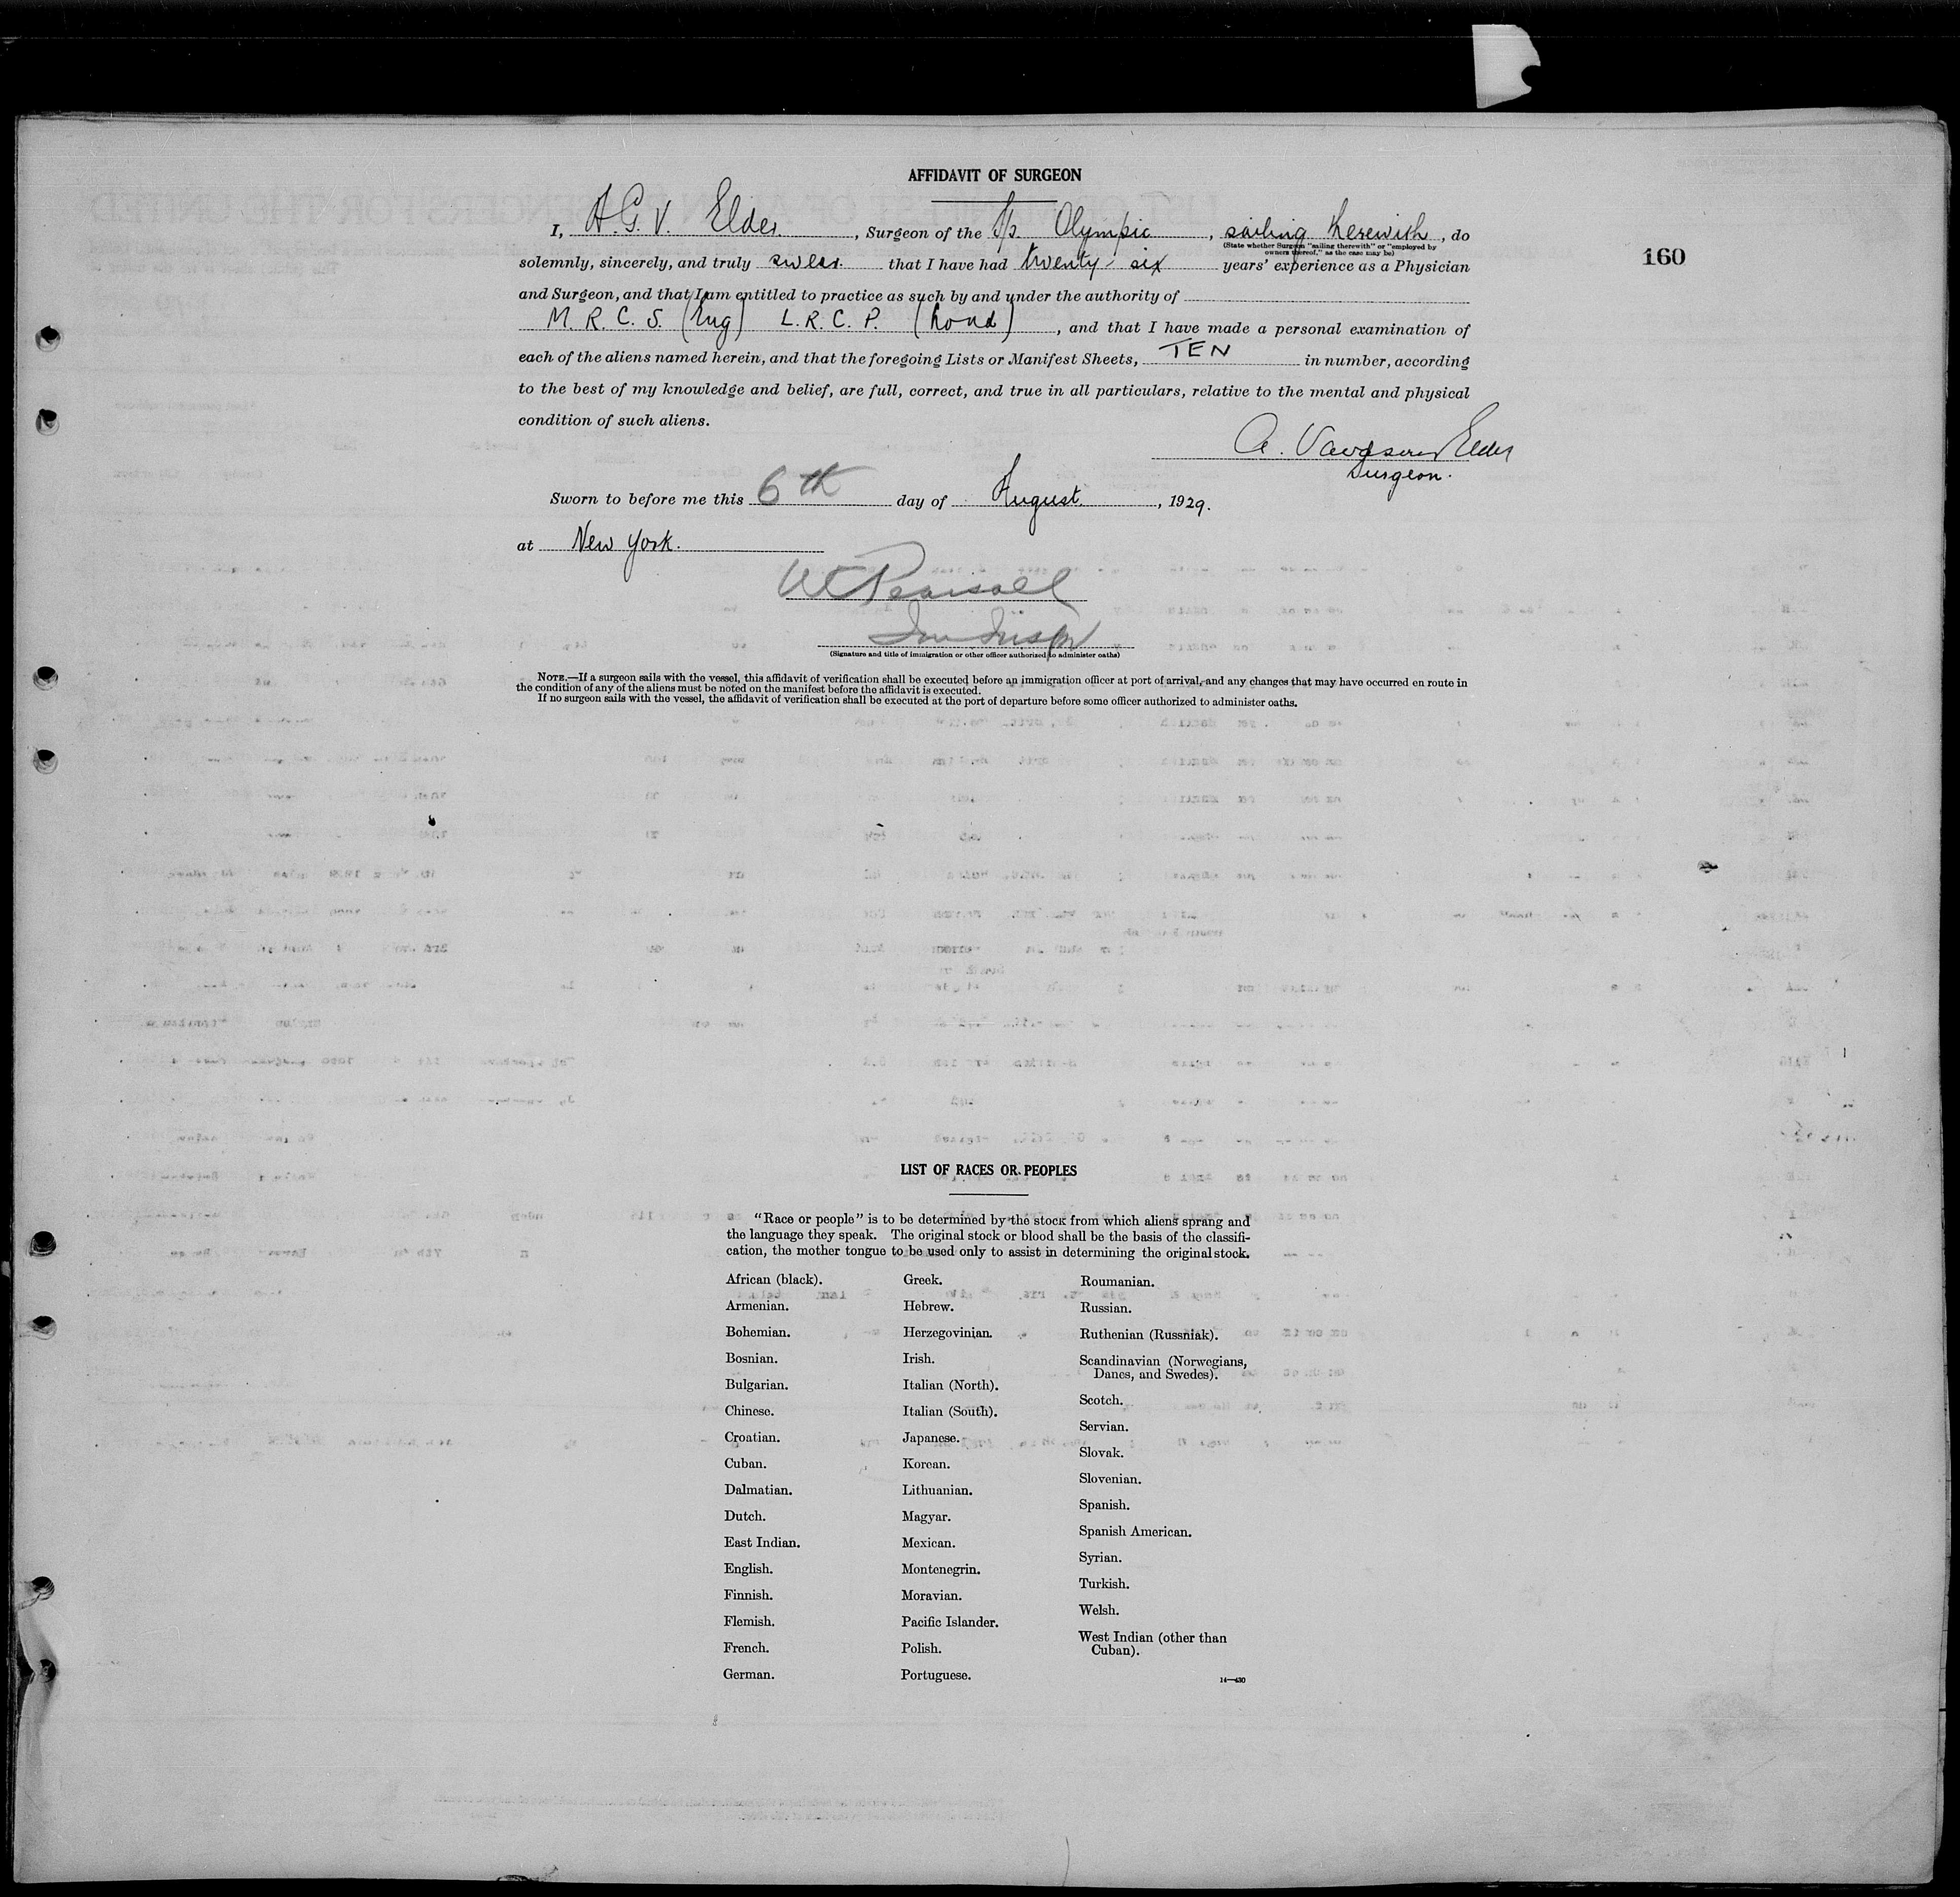 AFFIDAVIT OF SURGEON
I, A. G. V. Elder, Surgeon of the S/s. Olympic, sailing therewith, do
(State whether Surgeon "sailing therewith" or "employed by
owners thereof," as the case may be)
160
solemnly, sincerely, and truly swear that I have had twenty-six years' experience as a Physician
and Surgeon, and that I am entitled to practice as such by and under the authority of
M. R. C. S. (Eng) L. R. C. P. (Lond), and that I have made a personal examination of
each of the aliens named herein, and that the foregoing Lists or Manifest Sheets, TEN in number, according
to the best of my knowledge and belief, are full, correct, and true in all particulars, relative to the mental and physical
condition of such aliens.
A. Elder
Surgeon.
Sworn to before me this 6th day of August, 1929.
at New York.
W Pearsall
Imm Inspr
(Signature and title of immigration or other officer authorized to administer oaths)
NOTE.—If a surgeon sails with the vessel, this affidavit of verification shall be executed before an immigration officer at port of arrival, and any changes that may have occurred en route in
the condition of any of the aliens must be noted on the manifest before the affidavit is executed.
If no surgeon sails with the vessel, the affidavit of verification shall be executed at the port of departure before some officer authorized to administer oaths.
LIST OF RACES OR PEOPLES
"Race or people" is to be determined by the stock from which aliens sprang and
the language they speak. The original stock or blood shall be the basis of the classifi-
cation, the mother tongue to be used only to assist in determining the original stock.
African (black).
Armenian.
Bohemian.
Bosnian.
Bulgarian.
Chinese.
Croatian.
Cuban.
Dalmatian.
Dutch.
East Indian.
English.
Finnish.
Flemish.
French.
German.
Greek.
Hebrew.
Herzegovinian.
Irish.
Italian (North).
Italian (South).
Japanese.
Korean.
Lithuanian.
Magyar.
Mexican.
Montenegrin.
Moravian.
Pacific Islander.
Polish.
Portuguese.
Roumanian.
Russian.
Ruthenian (Russniak).
Scandinavian (Norwegians,
Danes, and Swedes).
Scotch.
Servian.
Slovak.
Slovenian.
Spanish.
Spanish American.
Syrian.
Turkish.
Welsh.
West Indian (other than
Cuban).
14—430